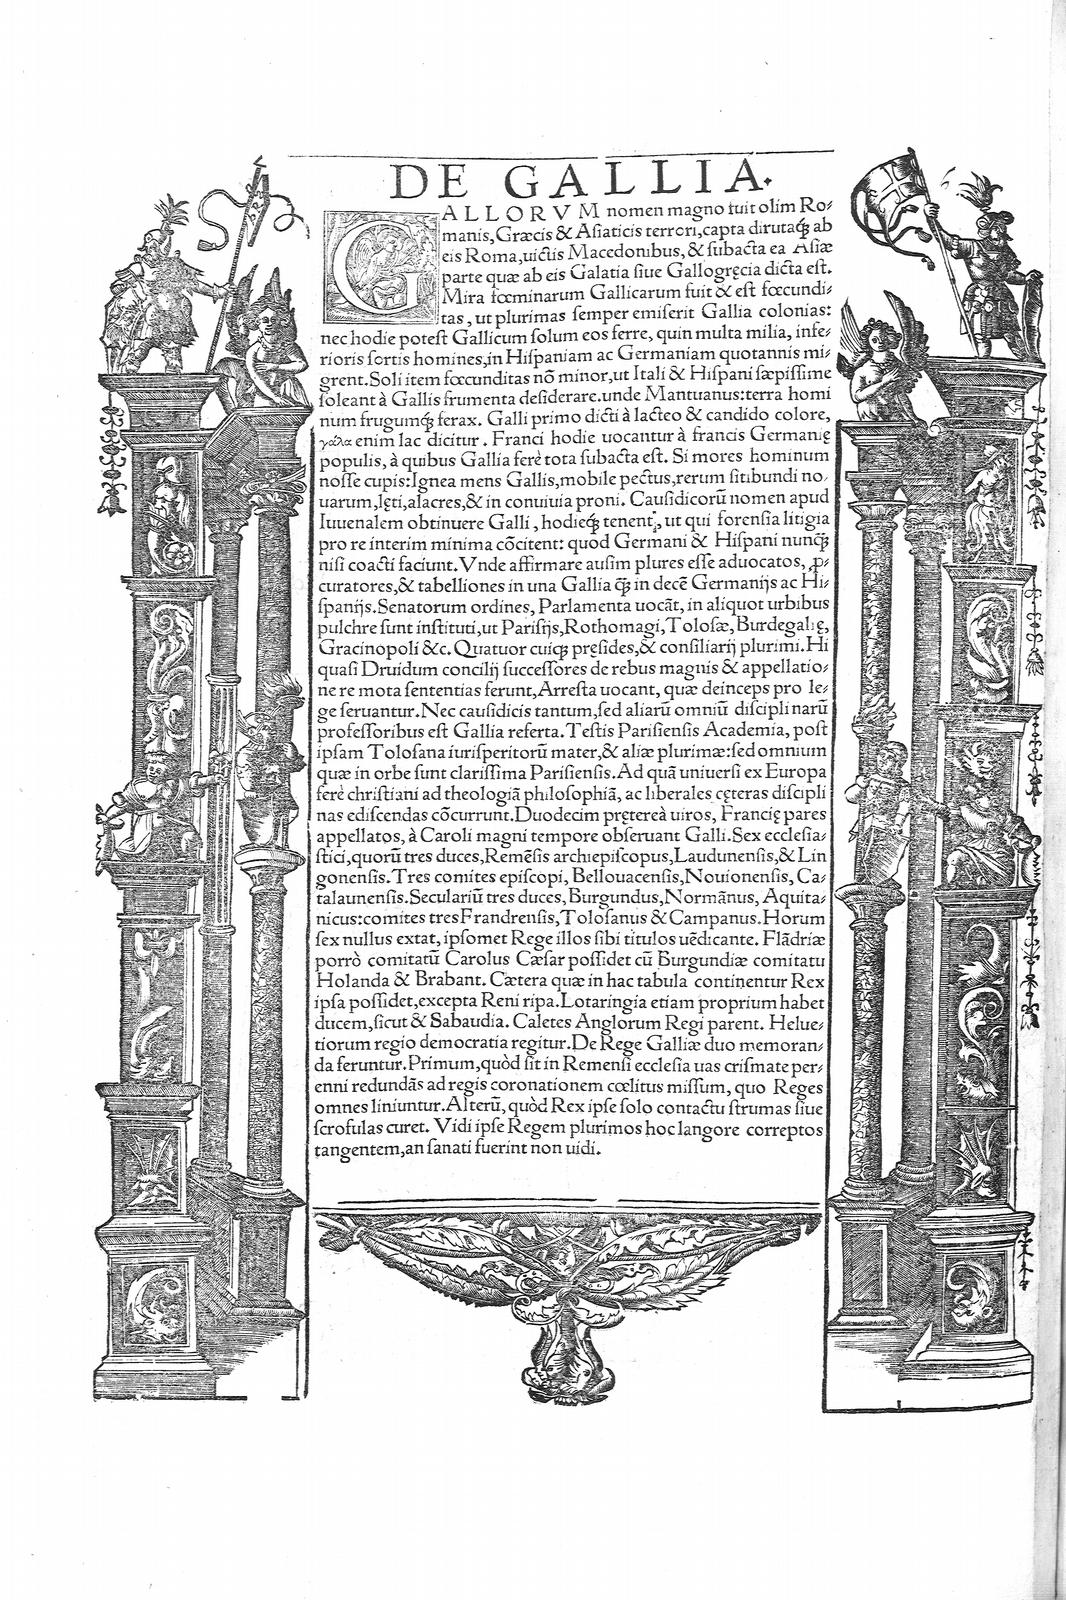 DE GALLIA.
GALLORVM nomen magno fuit olim Ro-
manis, Græcis & Asiaticis terrori, capta dirutaq́ꝫ ab
eis Roma, uictis Macedonibus, & subacta ea Asiæ
parte quæ ab eis Galatia siue Gallogręcia dicta est.
Mira fœminarum Gallicarum fuit & est fœcundi-
tas, ut plurimas semper emiserit Gallia colonias:
nec hodie potest Gallicum solum eos ferre, quin multa milia, infe-
rioris sortis homines, in Hispaniam ac Germaniam quotannis mi-
grent. Soli item fœcunditas nō minor, ut Itali & Hispani sæpissime
soleant à Gallis frumenta desiderare. unde Mantuanus: terra homi
num frugumq́ꝫ ferax. Galli primo dicti à lacteo & candido colore,
γάλα enim lac dicitur. Franci hodie uocantur à francis Germanię
populis, à quibus Gallia ferè tota subacta est. Si mores hominum
nosse cupis: Ignea mens Gallis, mobile pectus, rerum sitibundi no-
uarum, lęti, alacres, & in conuiuia proni. Causidicorū nomen apud
Iuuenalem obtinuere Galli, hodieq́ꝫ tenent, ut qui forensia litigia
pro re interim minima cōcitent: quod Germani & Hispani nunq̃
nisi coacti faciunt. Vnde affirmare ausim plures esse aduocatos, ꝓ-
curatores, & tabelliones in una Gallia q̃ in decē Germanijs ac Hi-
spanijs. Senatorum ordines, Parlamenta uocāt, in aliquot urbibus
pulchre sunt instituti, ut Parisijs, Rothomagi, Tolosæ, Burdegalię,
Gracinopoli &c. Quatuor cuiqꝫ pręsides, & consiliarij plurimi. Hi
quasi Druidum concilij successores de rebus magnis & appellatio-
ne re mota sententias ferunt, Arresta uocant, quæ deinceps pro le-
ge seruantur. Nec causidicis tantum, sed aliarū omniū discipli narū
professoribus est Gallia referta. Testis Parisiensis Academia, post
ipsam Tolosana iurisperitorū mater, & aliæ plurimæ: sed omnium
quæ in orbe sunt clarissima Parisiensis. Ad quā uniuersi ex Europa
ferè christiani ad theologiā philosophiā, ac liberales cęteras discipli
nas ediscendas cōcurrunt. Duodecim pręterea uiros, Francię pares
appellatos, à Caroli magni tempore obseruant Galli. Sex ecclesia-
stici, quorū tres duces, Remēsis archiepiscopus, Laudunensis, & Lin
gonensis. Tres comites episcopi, Bellouacensis, Nouionensis, Ca-
talaunensis. Seculariū tres duces, Burgundus, Normānus, Aquita-
nicus: comites tres Frandrensis, Tolosanus & Campanus. Horum
sex nullus extat, ipsomet Rege illos sibi titulos uēdicante. Flādriæ
porrò comitatū Carolus Cæsar possidet cū Burgundiæ comitatu
Holanda & Brabant. Cætera quæ in hac tabula continentur Rex
ipsa possidet, excepta Reni ripa. Lotaringia etiam proprium habet
ducem, sicut & Sabaudia. Caletes Anglorum Regi parent. Helue-
tiorum regio democratia regitur. De Rege Galliæ duo memoran-
da feruntur. Primum, quòd sit in Remensi ecclesia uas crismate per-
enni redundās ad regis coronationem cœlitus missum, quo Reges
omnes liniuntur. Alterū, quòd Rex ipse solo contactu strumas siue
scrofulas curet. Vidi ipse Regem plurimos hoc langore correptos
tangentem, an sanati fuerint non uidi.